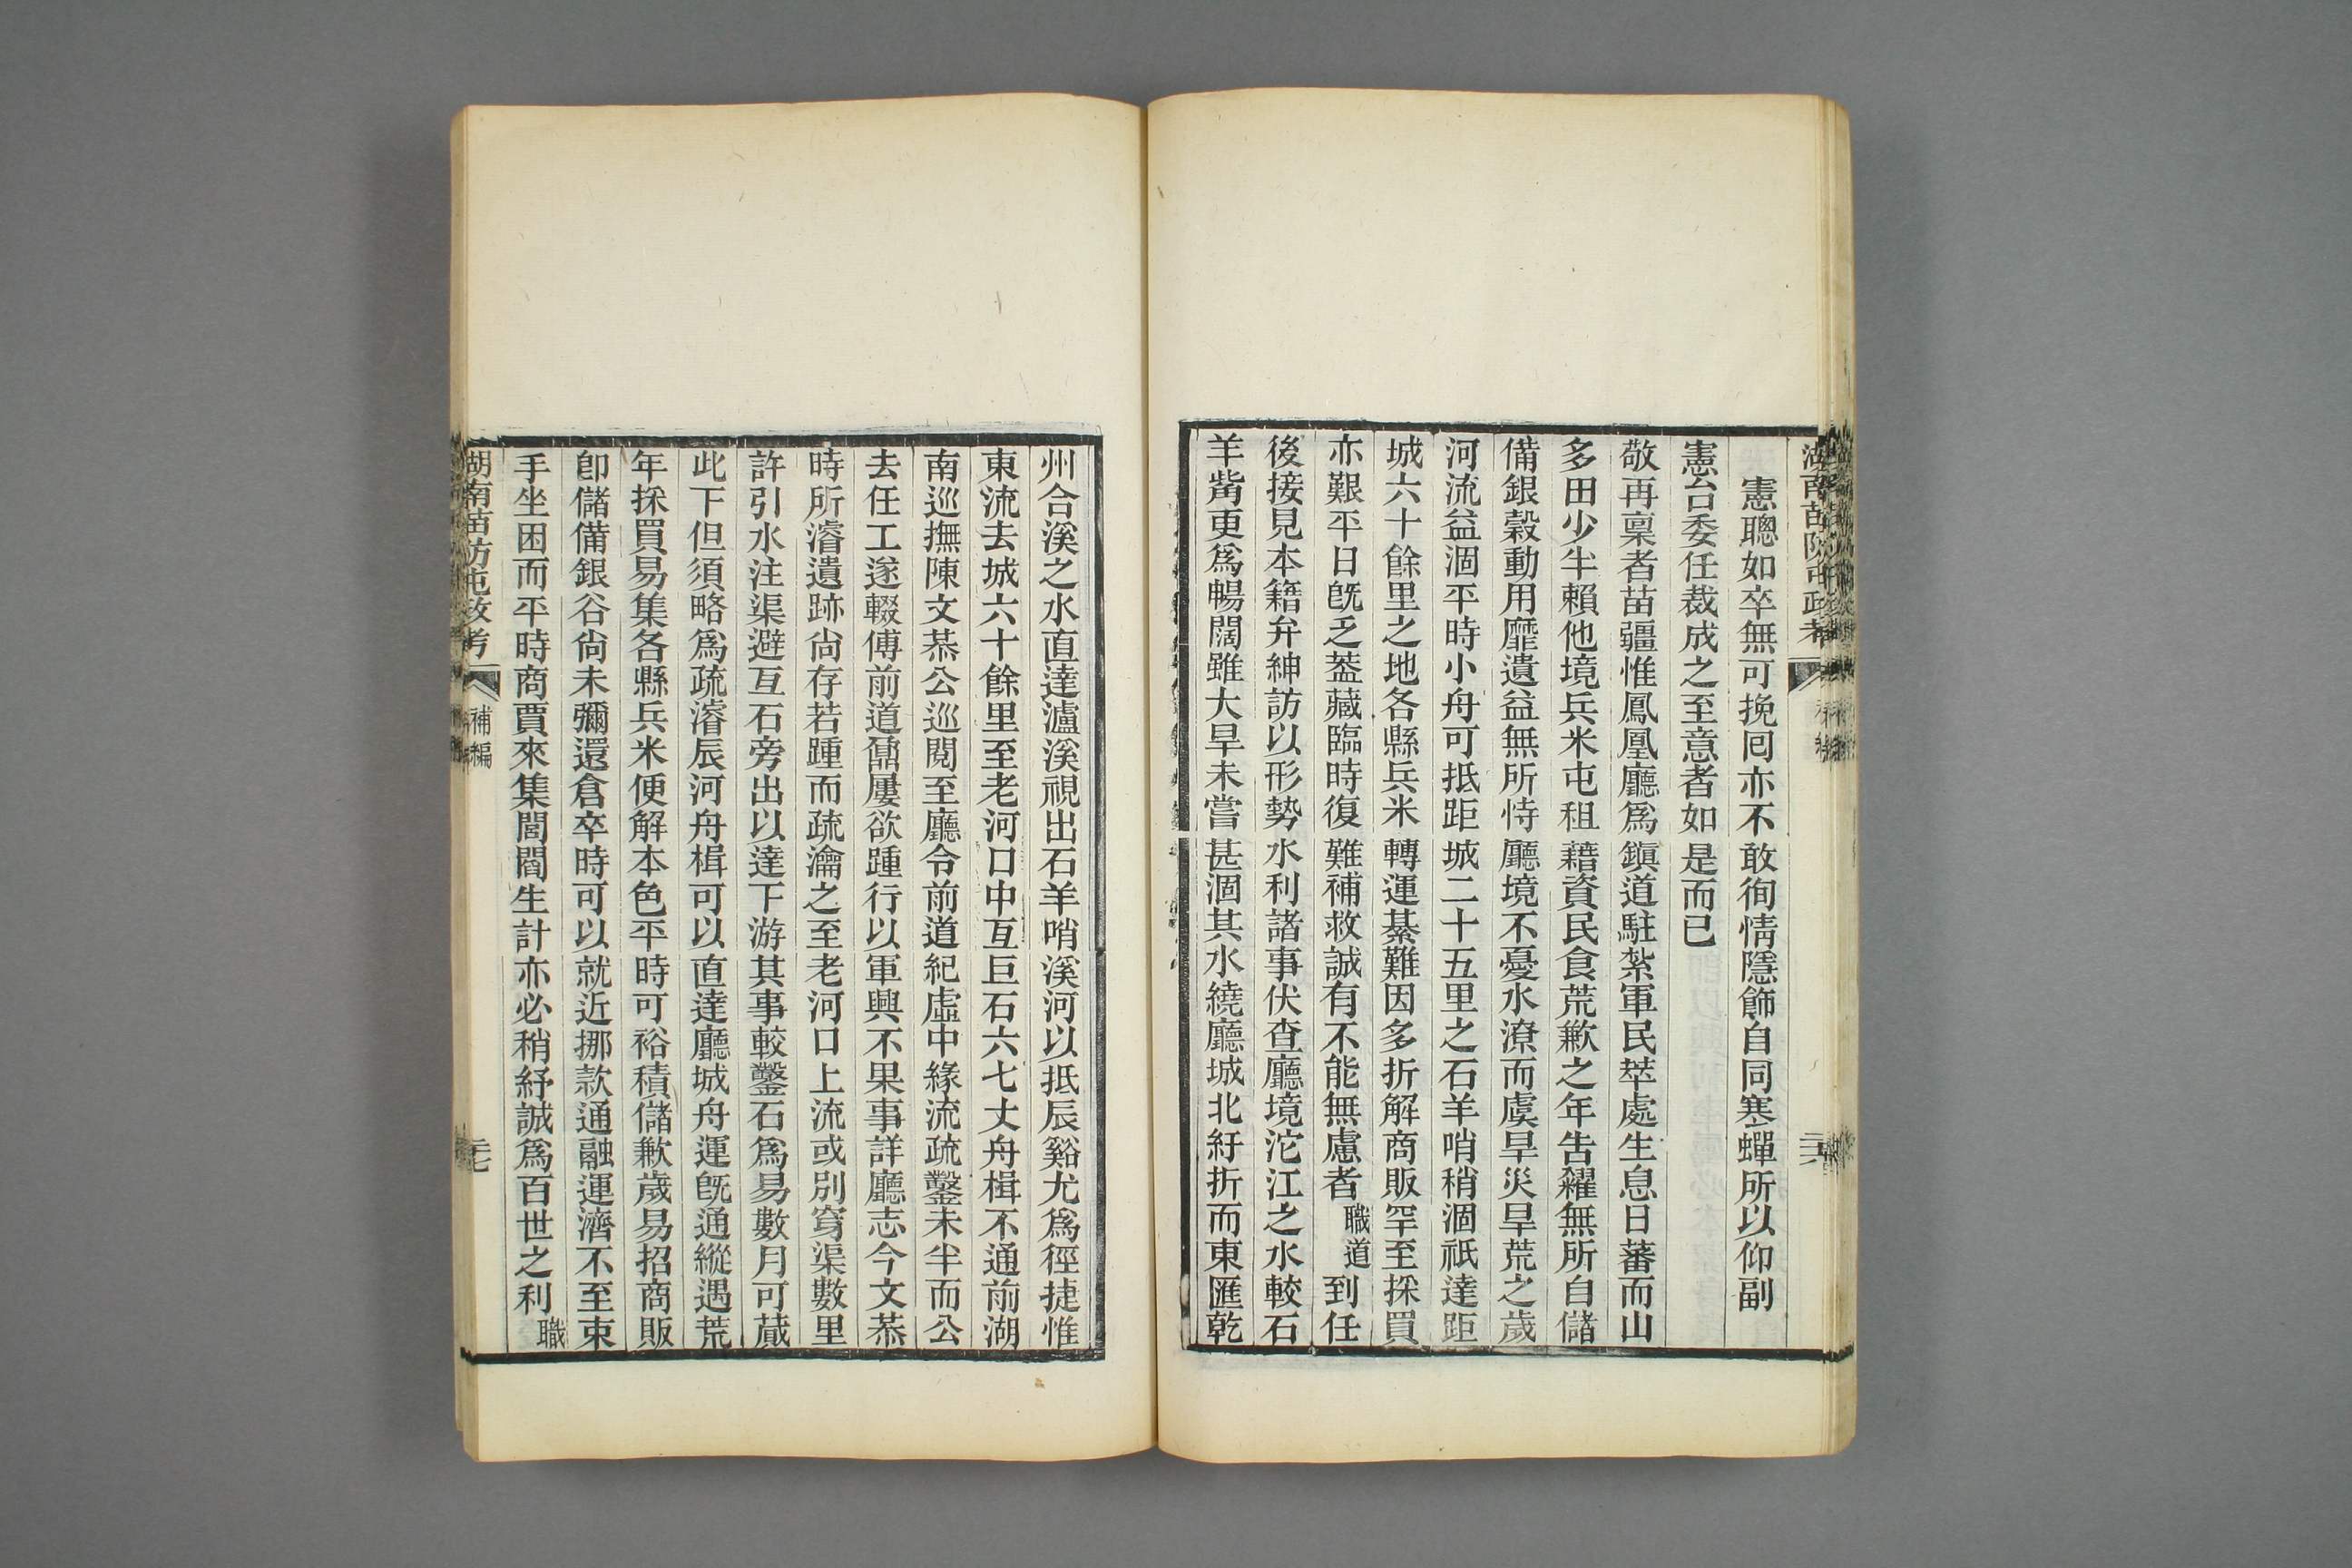 憲聰如卒無可挽囘亦不敢徇情隱飾自同寒蟬所以仰副
憲台委任裁成之至意者如是而已
敬再稟者苗疆惟鳳凰廳爲鎭道駐紮軍民萃處生息日蕃而山
多田少半賴他境兵米屯租藉資民食荒歉之年告糴無所自儲
備銀穀動用靡遺益無所恃廳境不憂水潦而虞旱災旱荒之歲
河流益涸平時小舟可抵距城二十五里之石羊哨稍涸祇達距
城六十餘里之地各縣兵米轉運綦難因多折解商販罕至採買
亦艱平日旣乏葢藏臨時復難補救誠有不能無慮者職道到任
後接見本籍弁紳訪以形勢水利諸事伏查廳境沱江之水較石
羊觜更爲暢闊雖大旱未嘗甚涸其水繞廳城北紆折而東匯乾
州合溪之水直達瀘溪視出石羊哨溪河以抵辰谿尤爲徑捷惟
東流去城六十餘里至老河口中互巨石六七丈舟楫不通前湖
南巡撫陳文恭公巡閱至廳令前道紀虛中緣流疏鑿未半而公
去任工遂輟傅前道鼐屢欲踵行以軍興不果事詳廳志今文恭
時所濬遺跡尙存若踵而疏瀹之至老河口上流或別穿渠數里
許引水注渠避互石旁出以達下游其事較鑿石爲易數月可蕆
此下但須略爲疏濬辰河舟楫可以直達廳城舟運旣通縱遇荒
年採買易集各縣兵米便解本色平時可裕積儲歉歲易招商販
卽儲備銀谷尙未彌還倉卒時可以就近挪款通融運濟不至束
手坐困而平時商賈來集閭閻生計亦必稍紓誠爲百世之利職
湖南苗防屯政考 補編 二七